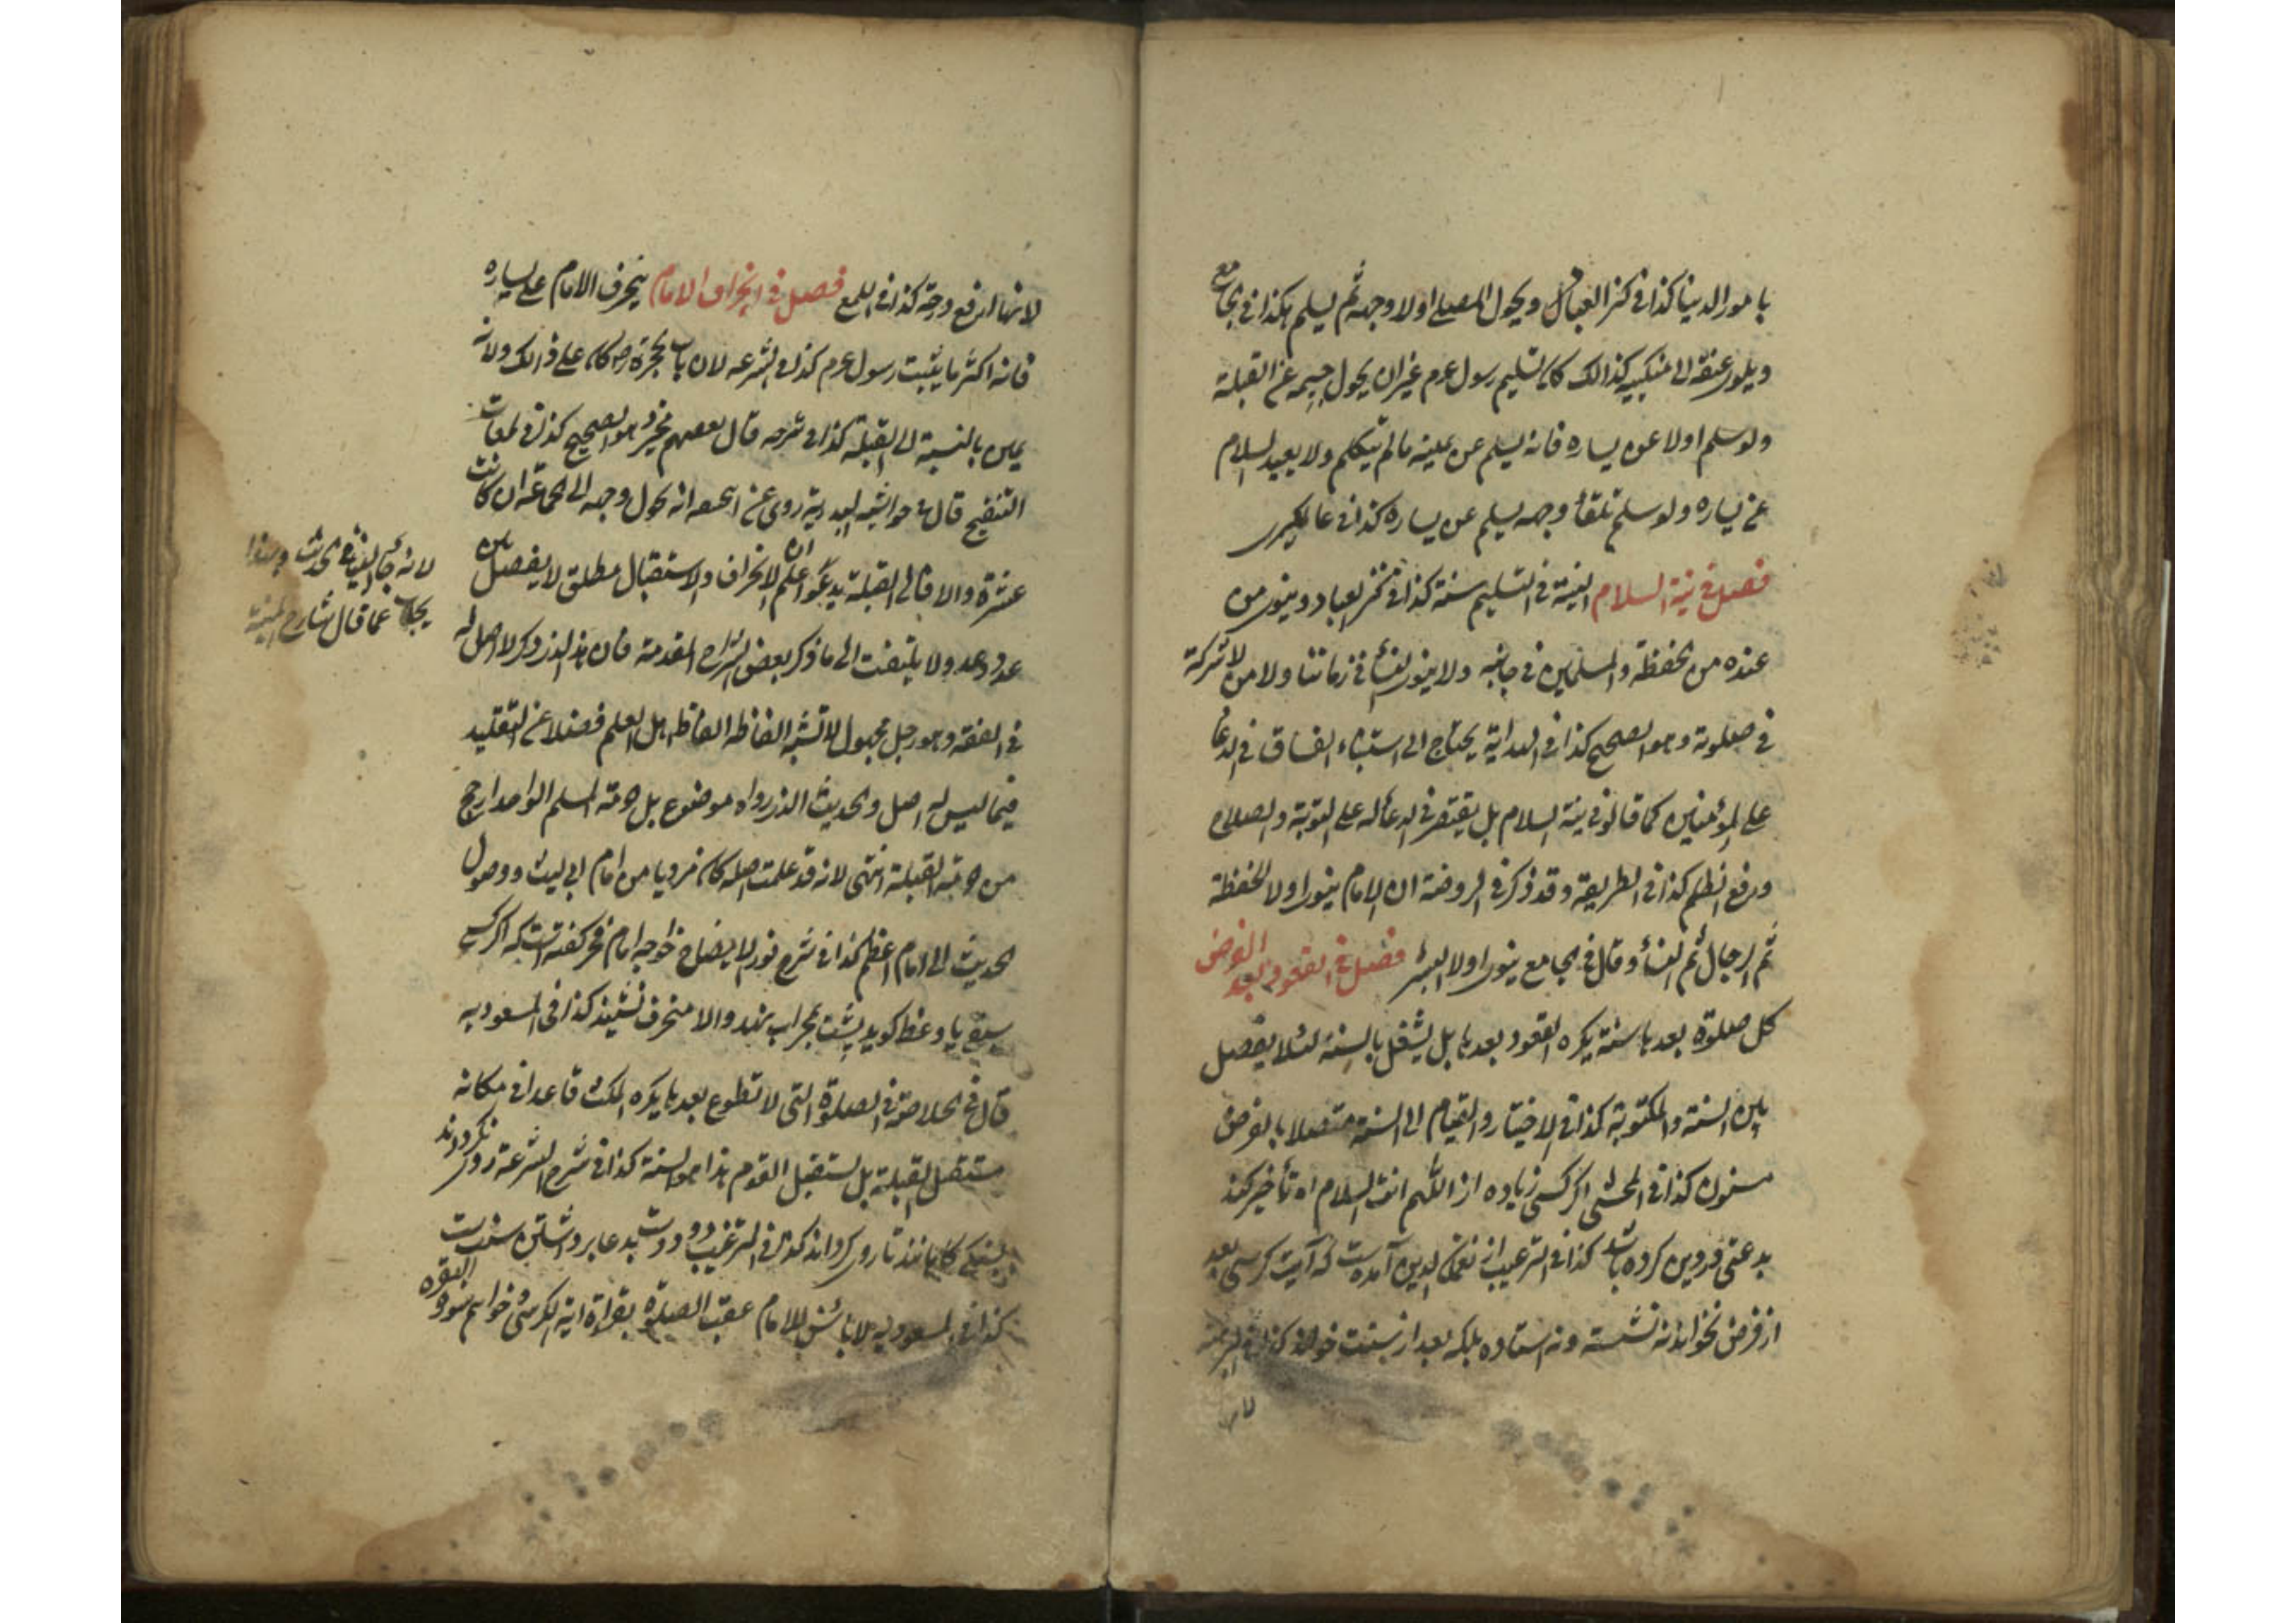 بامور الدينا كذا في كنز العباد ويحول المصلے اولا وجهه ثم يسلم هكذا في الجامع
ويلوى عنقه الى منكبيه كذالك كان تسليم رسول عم من غير ان يحول جسمه عن القبلة
ولو سلم اولا عن يساره فانه يسلم عن يمينه مالم يتكلم ولا يعيد السلام
عن يساره ولو سلم تلقاء وجهه يسلم عن يساره كذا في عالمكيرى
فصل في نية السلام النية في التسليم سنة كذا في كنز العباد وينوى من
عنده من الحفظة والمسلمين في جانبيه ولا ينوى النسأ في زماننا ولا من لا شركة
في صلوته وهو الصحيح كذا في الهداية يحتاج الى استثناء الفساق في الدعا
على المؤمنين كما قالو في نية السلام بل يقتصر في الدعاله على التوبة والصلاح
ورفع الظلم كذا في الطريقة وقد ذكر في الروضة ان الامام ينوى اولا الحفظة
ثم الرجال ثم النسأ وقال في الجامع ينوى اولا البشر فصل في القعود بعد الفرض
كل صلوة بعدها سنة يكره القعود بعدها بل يشغل بالسنة لئلا يفصل
بين السنة والمكتوبة كذا في الاختيار والقيام الى السنة متصلا بالفرض
مسنون كذا في المحشى اكر كسى زياده از اللهم انت السلام اه تأخير كند
بدعتى در دين كرده باشد كذا في الترغيب از نعمان الدين آمده ست كه آيت كرسى بعد
از فرض نخواند نه نشسته ونه استاده بلكه بعد از سنت خواند كذا في
لانها
لانها ارفع درجة كذا في اللمع فصل في انحراف الامام ينحرف الامام على يساره
فانه اكثر ما يثبت رسول عم كذا في الشرعه لان باب حجرة ص كان على ذالك ولانه
يمين بالنسبة الى القبلة كذا في شرحه قال بعضهم مخير وهو الصحيح كذا في لمعات
التنقيح قال في حواشيه البدرية روى عن ابى حنيفه انه يحول وجهه الى الجماعة ان كانت
عشرة والا فالى القبلة يدعو اعلم ان الانحراف والاستقبال مطلق لا يفصل بين
عدد وعدد ولا يلتفت الى ما ذكر بعض الشراح المقدمة فان هذا الذى ذكر لا اصل له
في الفقه وهو رجل مجهول لا تشبه الفاظه الفاظ اهل العلم فضلا عن التقليد
فيما ليس له اصل والحديث الذى رواه موضوع بل حرمة المسلم الواحد ارجح
من حرمة القبلة انتهى لانه قد علمت اصله كان مرويا من امام ابى ليث ووصول
الحديث الى امام اعظم كذا في شرح نور الايضاح خواجه امام فخر كفته است كه اكر كسے
سبق يا وعظ كويد پشت بمحراب نهد والا منحرف نشيند كذا في المسعوديه
قال في الخلاصة في الصلوة التى لا تطوع بعدها يكره المكث قاعدا في مكانه
مستقبل القبلة بل يستقبل القوم هذا هو السنة كذا في شرح الشرعة روى نكرداند
تا روى كرداند كذا في الترغيب ودو دست بدعا برداشتن سنت ست
كذا في المسعوديه لا بأس للامام عقب الصلوة بقراءة آية الكرسى وخواتم سورة البقرة
لانه جأ الينا في الحديث وبهذا
يجاب عما قال شارح المنية